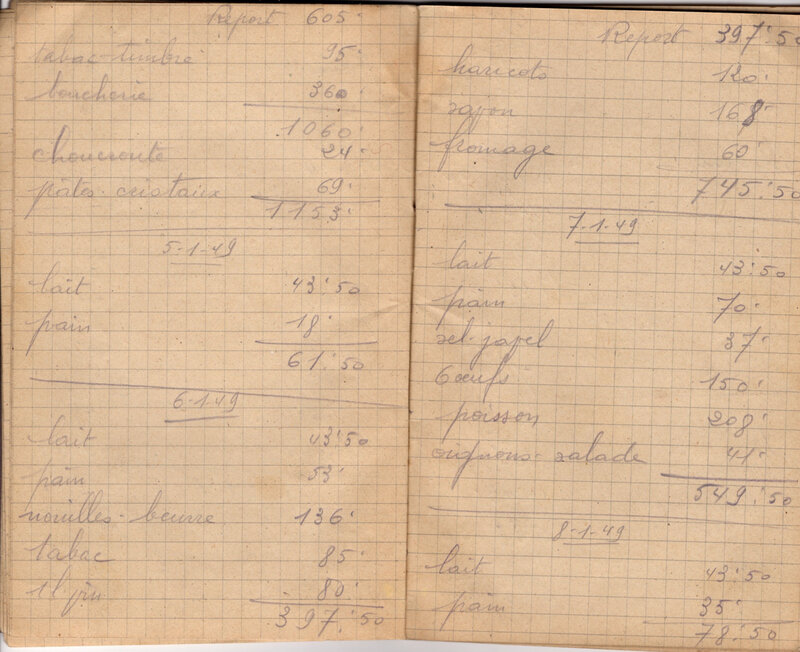 Report 605'
tabac-timbre 95'
boucherie 360
1060'
choucroute 24'
pâtes-cristaux 69'
1153'
5-1-49
lait 43'50
pain 18'
61'50
6-1-49
lait 43'50
pain 53'
nouilles-beurre 136'
tabac 85'
1l 80'
397'50
Report 397'50
haricots 120'
168
fromage 60'
745'50
7-1-49
lait 43'50
pain 70'
sel-javel 37'
6 œufs 150'
poisson 208'
oignons-salade 41'
549'50
8-1-49
lait 43'50
pain 35'
78'50